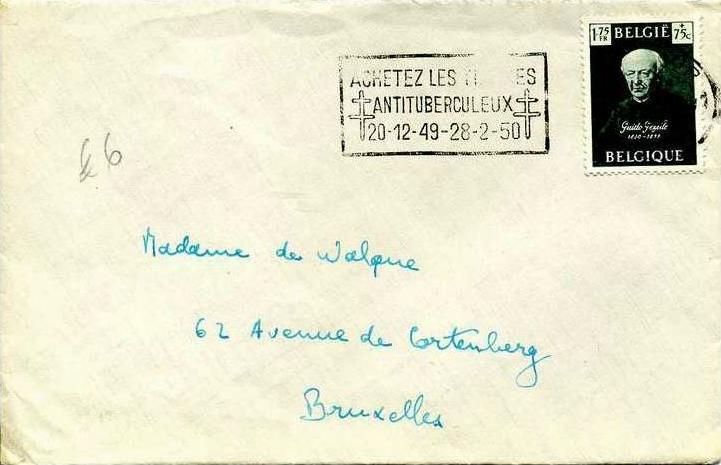 ACHETEZ LES ES
ANTITUBERCULEUX
20-12-49-28-2-50
1.75 FR BELGIË + 75c
Guido Gezelle
1830-1899
BELGIQUE
Madame de Walque
62 Avenue de Cortenberg
Bruxelles